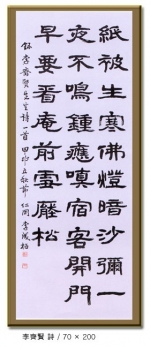 紙被生寒佛燈暗沙彌一
夜不鳴鍾應嗔宿客開門
早要看庵前雪壓松
李齊賢先生詩一首
李齊賢 詩 / 70 × 200